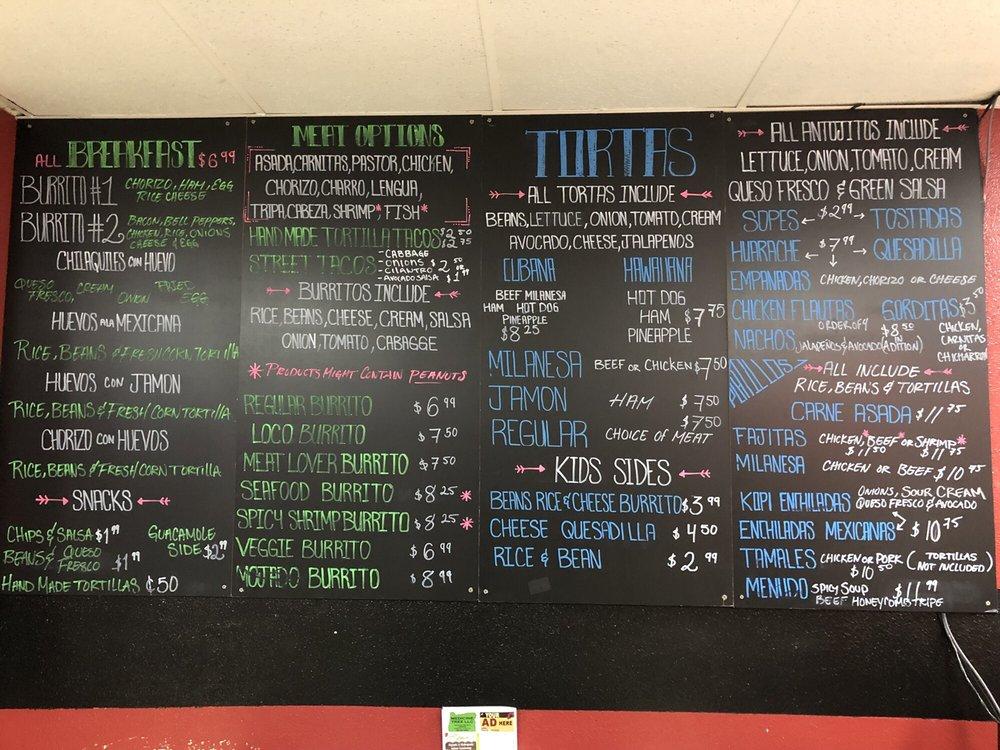 ALL BREAKFAST $6.99
BURRITO #1 CHORIZO, HAM, EGG
RICE CHEESE
BURRITO #2 BACON, BELL PEPPERS,
CHICKEN, RICE, ONIONS
CHEESE & EGG
CHILAQUILES CON HUEVO
QUESO FRESCO, CREAM ONION FRIED EGG
HUEVOS A LA MEXICANA
RICE, BEANS & FRESH CORN TORTILLA
HUEVOS CON JAMON
RICE, BEANS & FRESH CORN TORTILLA
CHORIZO CON HUEVOS
RICE, BEANS & FRESH CORN TORTILLA
SNACKS
CHIPS & SALSA $1.99
GUACAMOLE SIDE $2.99
BEANS & QUESO FRESCO $1.99
HAND MADE TORTILLAS ¢50
MEAT OPTIONS
ASADA, CARNITAS, PASTOR, CHICKEN,
CHORIZO, CHARRO, LENGUA,
TRIPA, CABEZA, SHRIMP* FISH*
HAND MADE TORTILLA TACOS $2.50 $2.75
STREET TACOS - CABBAGE
- ONIONS
- CILANTRO
- AVOCADO SALSA
$2.50 OR $1.99
BURRITOS INCLUDE
RICE, BEANS, CHEESE, CREAM, SALSA
ONION, TOMATO, CABAGGE
* PRODUCTS MIGHT CONTAIN PEANUTS
REGULAR BURRITO $6.99
LOCO BURRITO $7.50
MEAT LOVER BURRITO $7.50
SEAFOOD BURRITO $8.25 *
SPICY SHRIMP BURRITO $8.25 *
VEGGIE BURRITO $6.99
MOJADO BURRITO $8.99
TORTAS
ALL TORTAS INCLUDE
BEANS, LETTUCE, ONION, TOMATO, CREAM
AVOCADO, CHEESE, JALAPENOS
CUBANA
BEEF MILANESA
HAM HOT DOG
PINEAPPLE
$8.25
HAWAIIANA
HOT DOG
HAM $7.75
PINEAPPLE
MILANESA BEEF OR CHICKEN $7.50
JAMON HAM $7.50
REGULAR CHOICE OF MEAT $7.50
KIDS SIDES
BEANS RICE & CHEESE BURRITO $3.99
CHEESE QUESADILLA $4.50
RICE & BEAN $2.99
ALL ANTOJITOS INCLUDE
LETTUCE, ONION, TOMATO, CREAM
QUESO FRESCO & GREEN SALSA
SOPES $2.99 TOSTADAS
HUARACHE $7.99 QUESADILLA
EMPANADAS CHICKEN, CHORIZO OR CHEESE
CHICKEN FLAUTAS ORDER OF 4
GORDITAS $3.50
CHICKEN, CARNITAS OR CHICHARRON
NACHOS JALAPEÑOS & AVOCADO (ADITION) $8.50
PLATILLOS
ALL INCLUDE
RICE, BEANS & TORTILLAS
CARNE ASADA $11.75
FAJITAS CHICKEN, BEEF OR SHRIMP*
$11.50 $11.75
MILANESA CHICKEN OR BEEF $10.75
KOPI ENCHILADAS ONIONS, SOUR CREAM
QUESO FRESCO & AVOCADO
ENCHILADAS MEXICANAS $10.75
TAMALES CHICKEN OR PORK (TORTILLAS NOT INCLUDED)
$10.50
MENUDO SPICY SOUP $11.99
BEEF HONEYCOMB TRIPE
MEDICINE TREE LLC
YOUR AD HERE